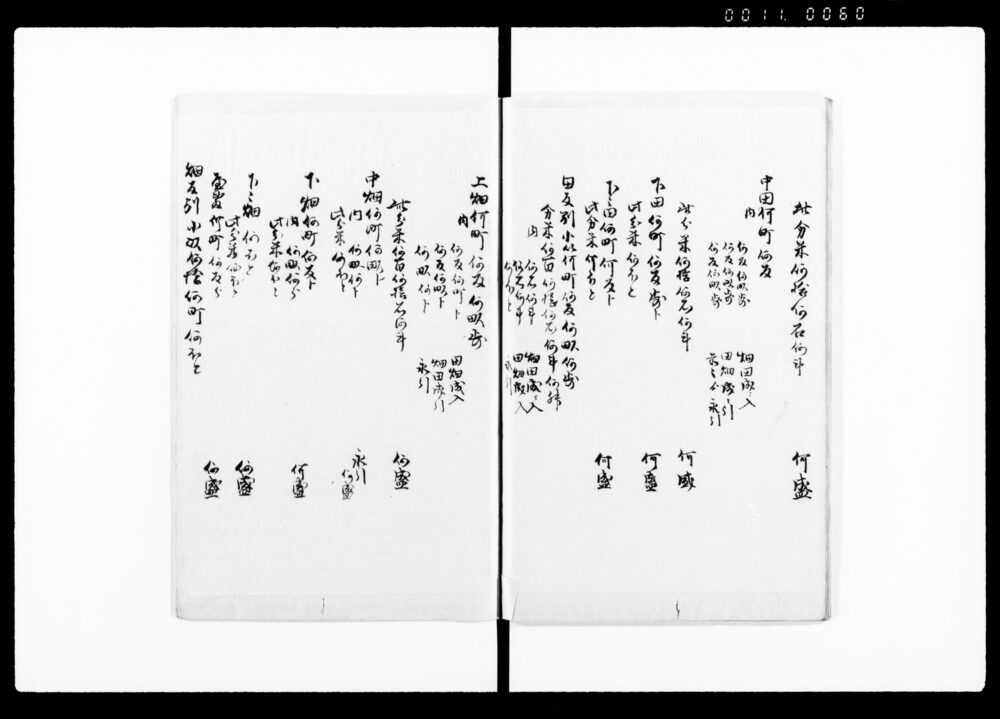 0011. 0060
此分米何拾何石何斗 何盛
中田何町何反
内
何反何畝歩 畑田成ニ入
何反何畝歩 田畑成ニ引
何反何畝歩 永引
此分米何拾何石何斗 何盛
下田何町何反歩ト
此分米何石と 何盛
下々田何町何反ト
此分米何石と 何盛
田反別小以何町何反何畝何歩
分米何百何拾何石何斗何升
内
何石何斗 畑田成ニ入
何石何斗 田畑成ニ入
何石と 永引
上畑何町何反何畝歩
内
何反何町ト 田畑成入
何反何畝ト 畑田成引
何畝何ト 永引
此分米何百何拾石何斗 何盛
中畑何町何畝ト
内 何畝何ト 永引
此分米何石と 何盛
下畑何町何反ト
内 何畝何分
此分米何石と 何盛
下々畑何石と
此分米何石と 何盛
屋敷何町何反分 何盛
畑反別小以何拾何町何石と